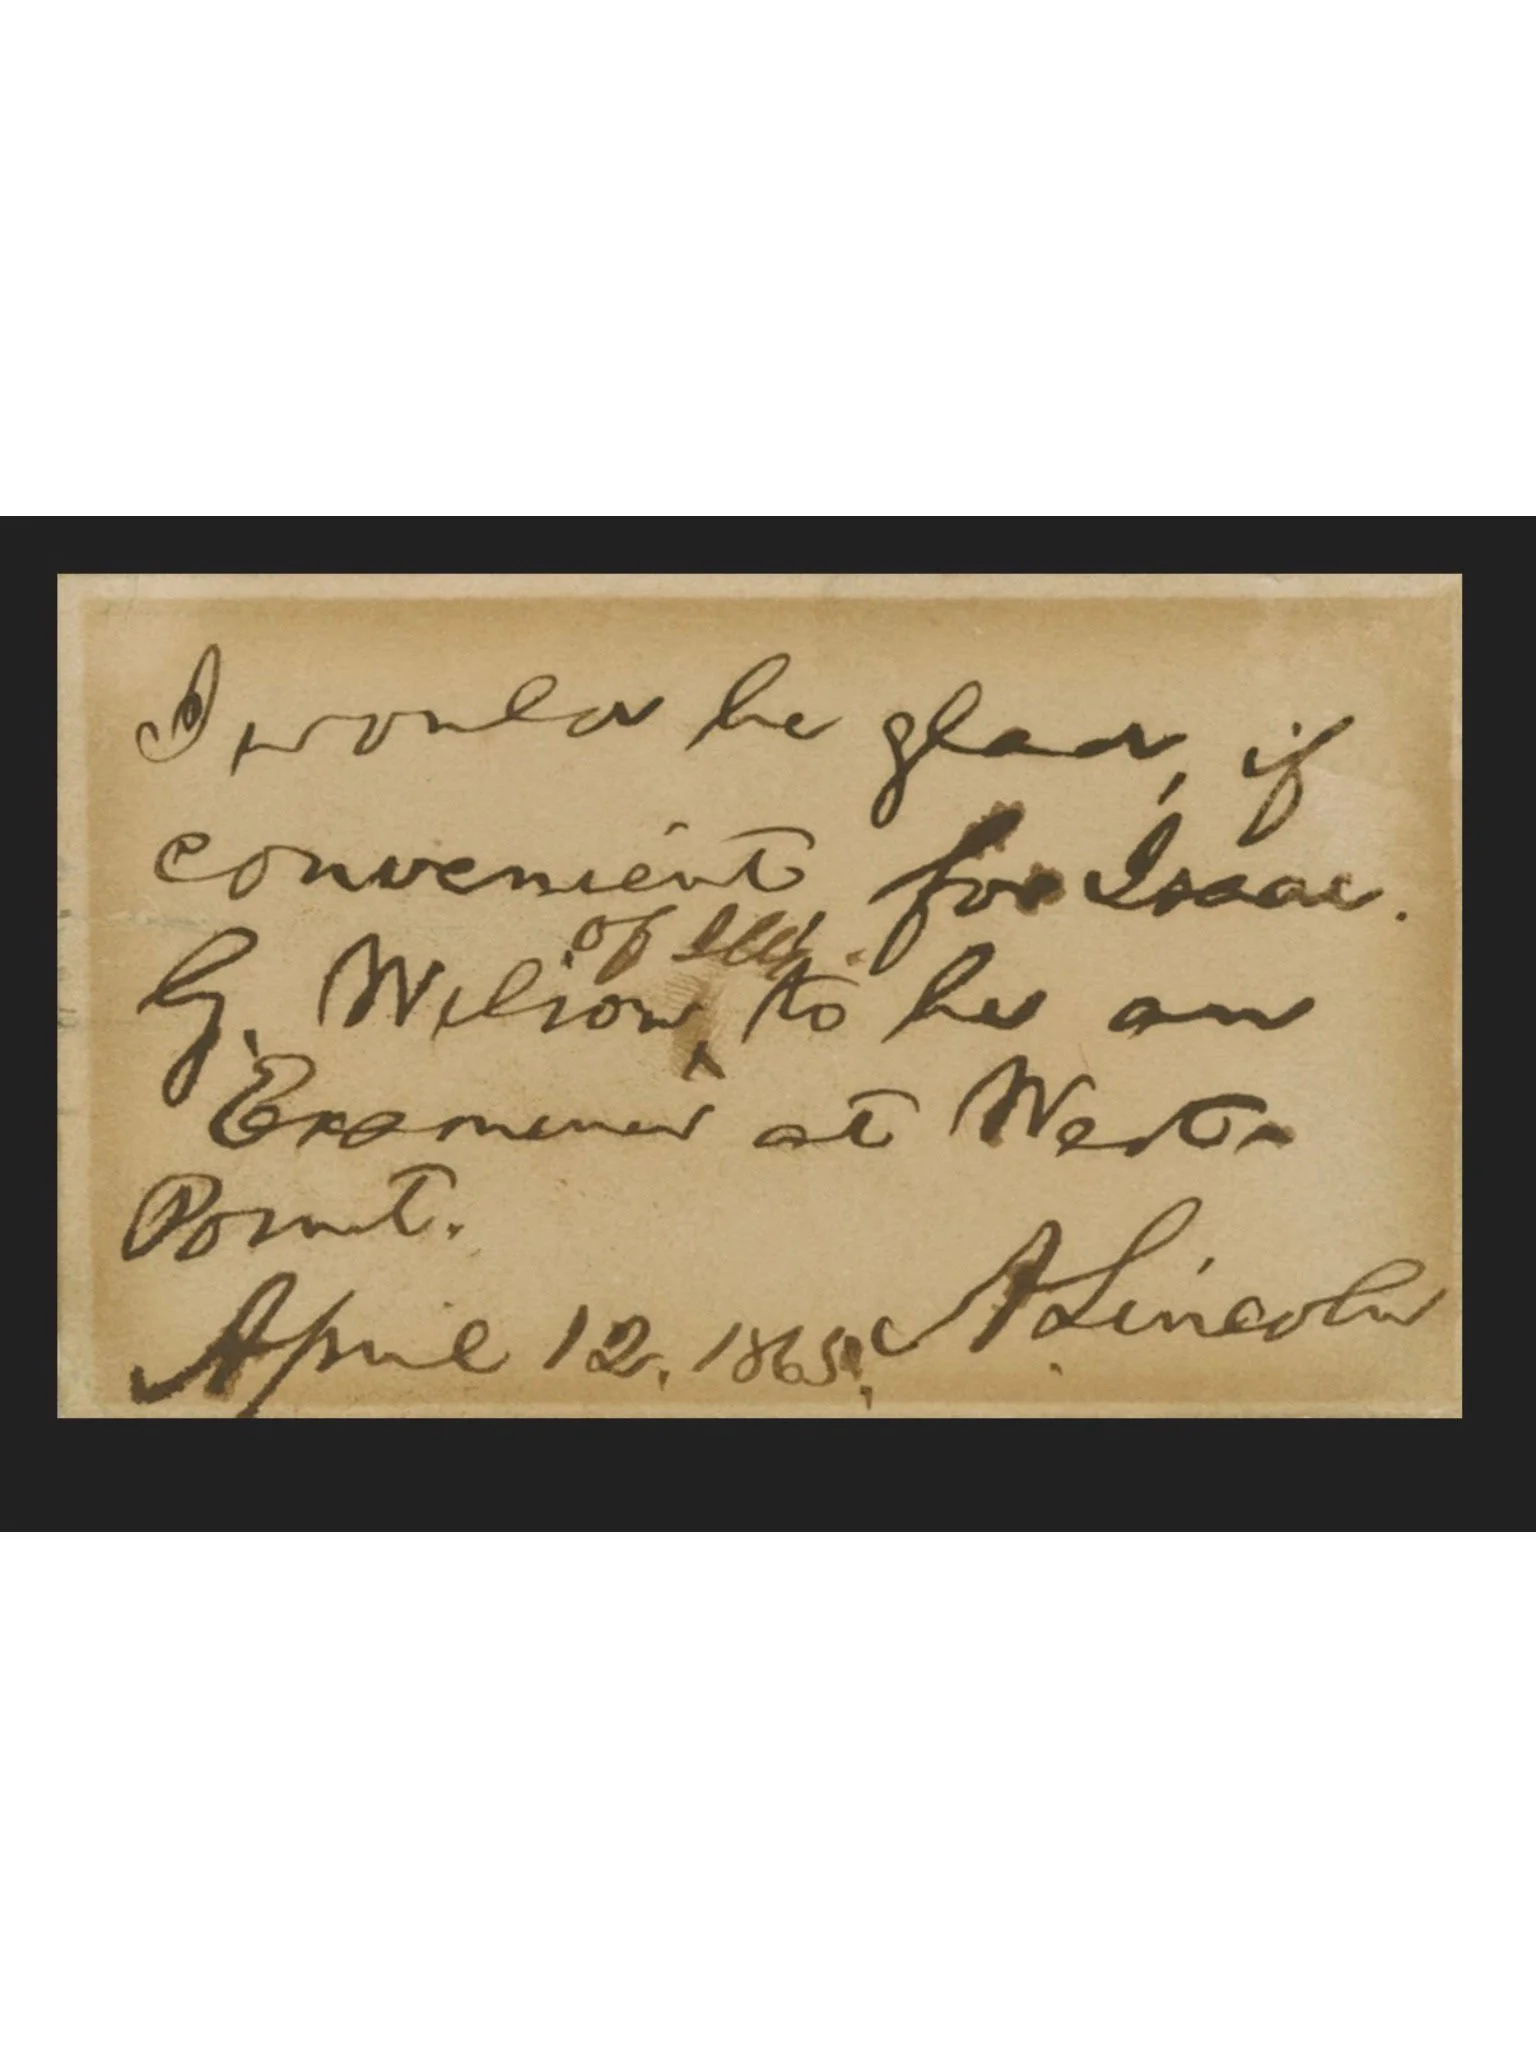 I would be glad, if
convenient for Isaac.
G. Wilson, of Ills. to be an
Examiner at West-
Point.
April 12, 1865. A Lincoln